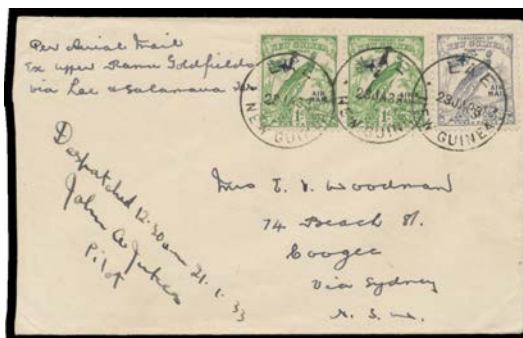 Per Aerial Mail
Ex upper Ramu Goldfields
via Lae & Salamaua
NEW GUINEA
AIR MAIL
NEW GUINEA
AIR MAIL
NEW GUINEA
AIR MAIL
LAE
23JA33
NEW GUINEA
LAE
23JA33
NEW GUINEA
LAE
23JA33
NEW GUINEA
Despatched 12.30am 21.1.33
John A Jukes
Pilot
Mrs E. V. Woodman
74 Beach St.
Coogee
Via Sydney
N. S. W.